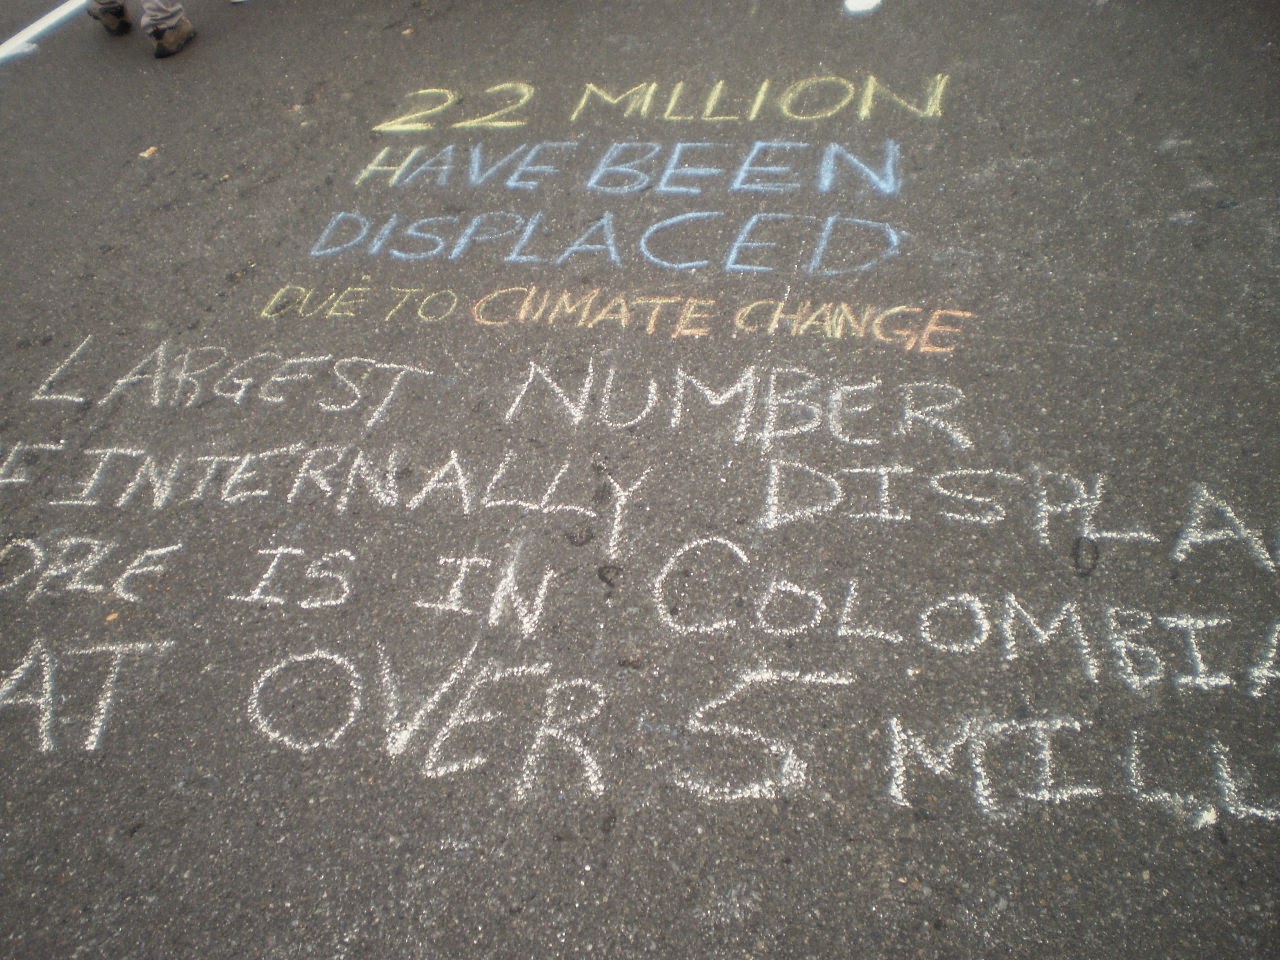 22 MILLION
HAVE BEEN
DISPLACED
DUE TO CLIMATE CHANGE
LARGEST NUMBER
F INTERNALLY DISPLA
OPLE IS IN COLOMBIA
AT OVER 5 MILL